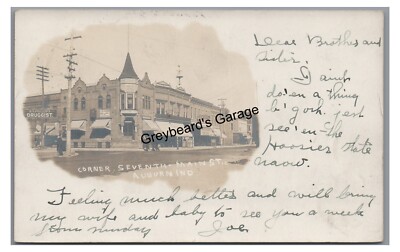 Dear Brother and
Sister.
I aint
do'en a thing
b'gosh. jest
see'en-the
Hoosier state
naow.
DRUGGIST.
Greybeard's Garage
CORNER SEVENTH-MAIN ST.
AUBURN IND
Feeling much better and will bring
my wife and baby to see you a week
from Sunday. Joe.